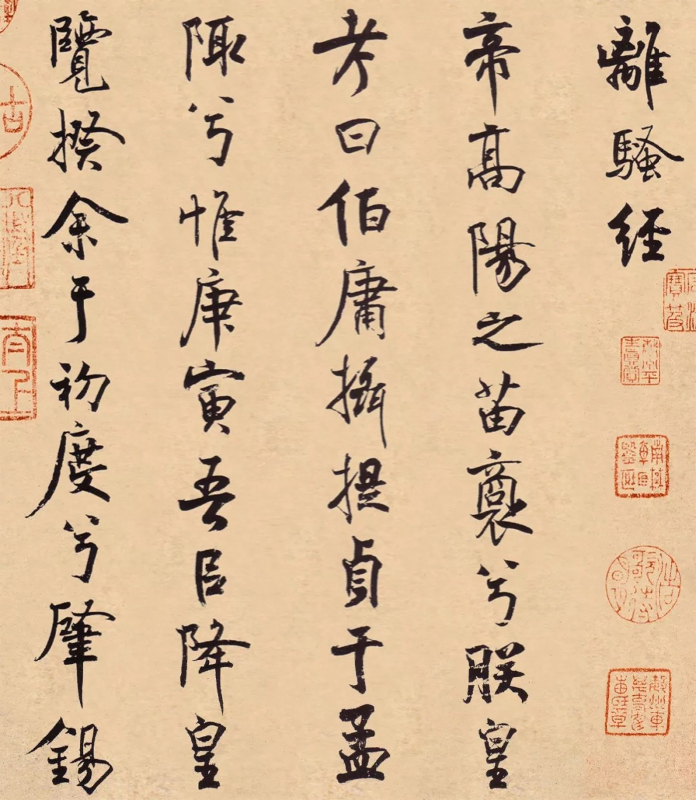 離騷經
帝髙陽之苗裔兮朕皇
考曰伯庸攝提貞于孟
陬兮惟庚寅吾㠯降皇
覽揆余于初度兮肇錫